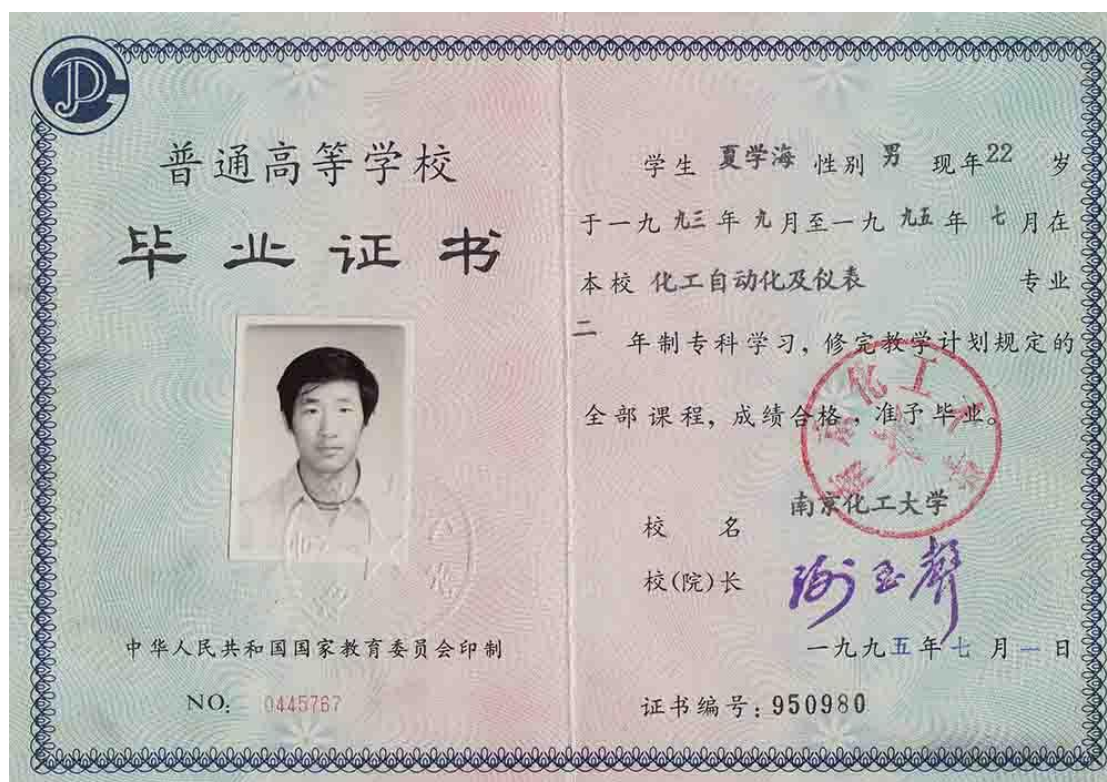 普通高等学校
毕业证书
中华人民共和国国家教育委员会印制
NO: 0445767
学生 夏学海 性别 男 现年22 岁
于一九九三年九月至一九九五年七月在
本校 化工自动化及仪表 专业
二年制专科学习,修完教学计划规定的
全部课程,成绩合格,准予毕业。
校 名 南京化工大学
校(院)长
一九九五年七月一日
证书编号:950980